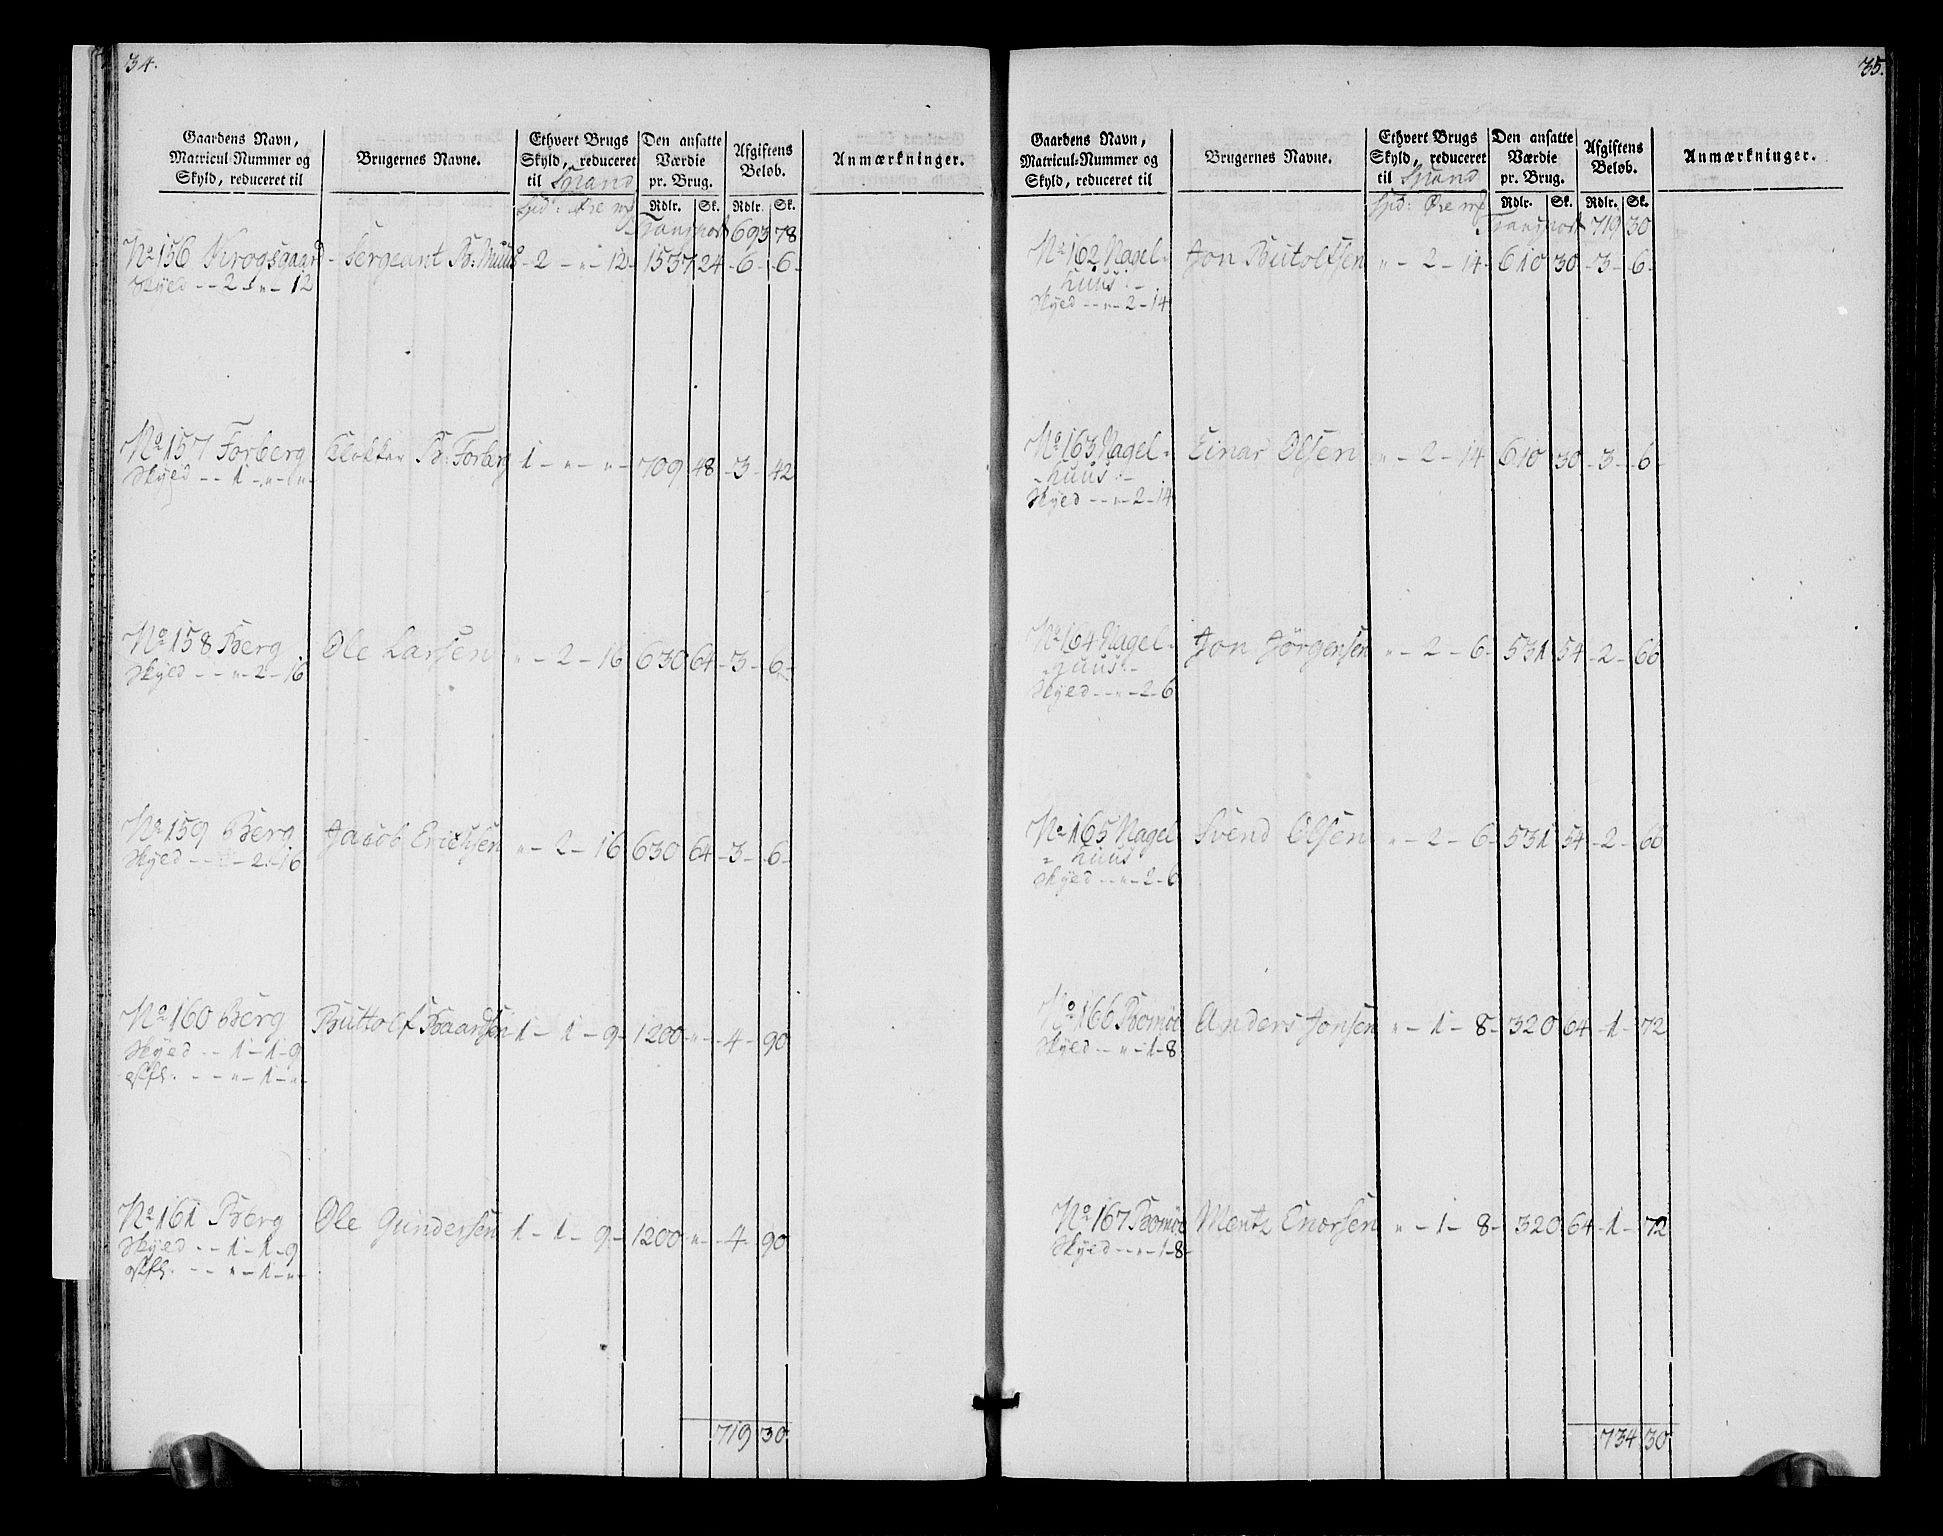 34.
Gaardens Navn,
Matricul-Nummer og
Skyld, reduceret til
Brugernes Navne.
Ethvert Brugs
Skyld, reduceret
til Spand
Den ansatte
Værdie
pr. Brug.
Afgiftens
Beløb.
Anmærkninger.
Spd: Øre mß
Rdlr. Sk. Rdlr. Sk.
Transport 693 78
No 156 Krogsgaard - Sergeant B: Muus - 2 - " - 12 - 1537 24 - 6 - 6 -
Skyed - - 2 - " - 12
No 157 Forberg Klokker B: Forberg 1 - " - " - 709 48 - 3 - 42
Skyed - - 1 - " - " -
No 158 Berg Ole Larsen " - 2 - 16 630 64 - 3 - 6 -
Skyed - - " - 2 - 16
No 159 Berg Jacob Erichsen " - 2 - 16 630 64 - 3 - 6 -
Skyed - - " - 2 - 16
No 160 Berg Buttolf Baardsen 1 - 1 - 9 - 1200 - " - - 4 - 90
Skyed - - 1 - 1 - 9
- - " - 1 - " -
No 161 Berg Ole Gundersen 1 - 1 - 9 - 1200 - " - - 4 - 90
Skyed - - 1 - 1 - 9
- - " - 1 - " -
719 30
35.
Gaardens Navn,
Matricul-Nummer og
Skyld, reduceret til
Brugernes Navne.
Ethvert Brugs
Skyld, reduceret
til Spand
Den ansatte
Værdie
pr. Brug.
Afgiftens
Beløb.
Anmærkninger.
Spd: Øre mß
Rdlr. Sk. Rdlr. Sk.
Transport 719 30
No 162 Nagel- Jon Butolfsen " - 2 - 14 - 610 30 - 3 - 6 -
huus :-
Skyed - - " - 2 - 14
No 163 Nagel- Einar Olsen " - 2 - 14 610 30 - 3 - 6 -
- huus :-
Skyed - - " - 2 - 14
No 164 Nagel- Jon Jörgensen " - 2 - 6 - 531 54 - 2 - 66
- huus :-
Skyed - - " - 2 - 6
No 165 Nagel Svend Olsen " - 2 - 6 - 531 54 - 2 - 66
= huus
Skyed - - " - 2 - 6
No 166 Bomöe Anders Jonsen " - 1 - 8 - 320 64 - 1 - 72
Skyed - - " - 1 - 8
No 167 Bomöe Mentz Enorsen " - 1 - 8 - 320 64 - 1 - 72
Skyed - - " - 1 - 8 -
734 30